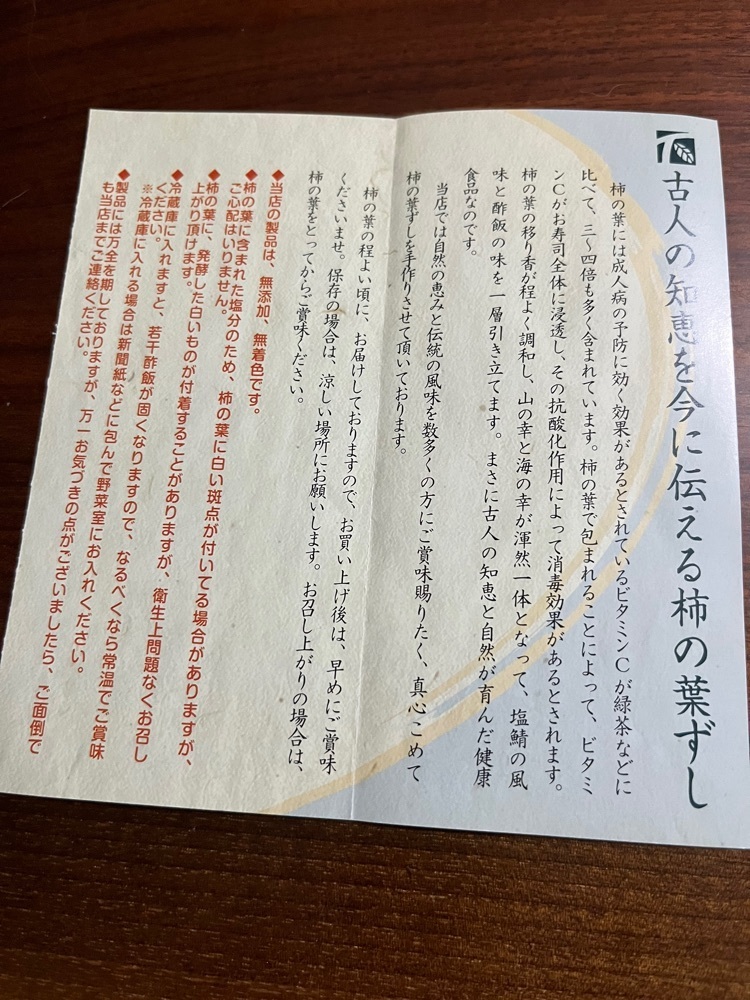 古人の知恵を今に伝える柿の葉ずし
柿の葉には成人病の予防に効く効果があるとされているビタミンCが緑茶などに
比べて、三〜四倍も多く含まれています。柿の葉で包まれることによって、ビタミ
ンCがお寿司全体に浸透し、その抗酸化作用によって消毒効果があるとされます。
柿の葉の移り香が程よく調和し、山の幸と海の幸が渾然一体となって、塩鯖の風
味と酢飯の味を一層引き立てます。まさに古人の知恵と自然が育んだ健康
食品なのです。
当店では自然の恵みと伝統の風味を数多くの方にご賞味賜りたく、真心こめて
柿の葉ずしを手作りさせて頂いております。
柿の葉の程よい頃に、お届けしておりますので、お買い上げ後は、早めにご賞味
くださいませ。保存の場合は、涼しい場所にお願いします。お召し上がりの場合は、
柿の葉をとってからご賞味ください。
◆当店の製品は、無添加、無着色です。
◆柿の葉に含まれた塩分のため、柿の葉に白い斑点が付いてる場合がありますが、
ご心配はいりません。
◆柿の葉に、発酵した白いものが付着することがありますが、衛生上問題なくお召し
上がり頂けます。
◆冷蔵庫に入れますと、若干酢飯が固くなりますので、なるべくなら常温でご賞味
ください。
※冷蔵庫に入れる場合は新聞紙などに包んで野菜室にお入れください。
◆製品には万全を期しておりますが、万一お気づきの点がございましたら、ご面倒で
も当店までご連絡ください。